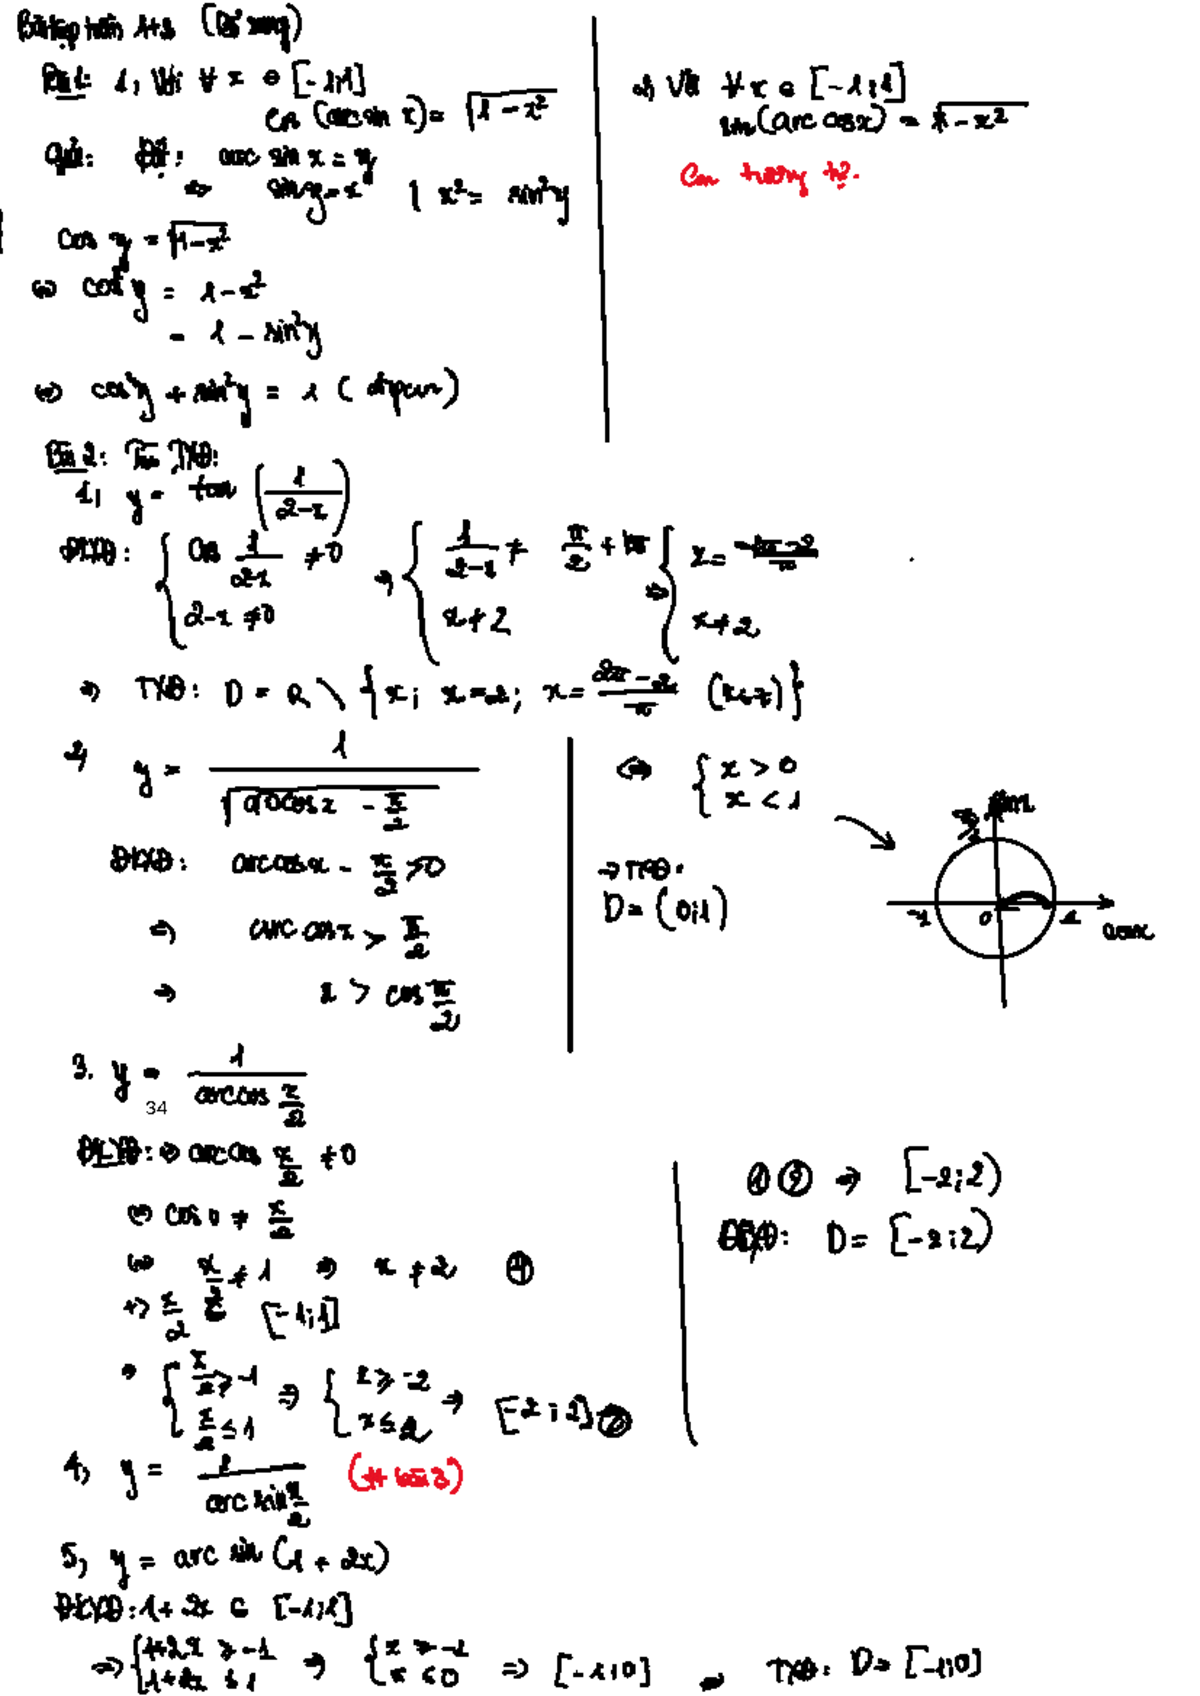 Bài tập tuần 1+2 (Bổ sung)
Bài 1: 1, Với ∀ x ∈ [-1;1]
cos (arcsin x) = √(1 - x²)
Giải: Đặt: arc sin x = y
=> sin y = x | x² = sin²y
cos y = √(1-x²)
<=> cos²y = 1 - x²
= 1 - sin²y
<=> cos²y + sin²y = 1 (đpcm)
2, Với ∀ x ∈ [-1;1]
sin (arc cosx) = √(1-x²)
Cm tương tự.
Bài 2: Tìm TXĐ:
1, y = tan (1/(2-x))
ĐKXĐ: { cos 1/(2-x) ≠ 0 => { 1/(2-x) ≠ π/2 + kπ => { x =
2-x ≠ 0 x ≠ 2 x ≠ 2
=> TXĐ: D = R \ { x; x = 2; x = (2π - 2)/π (k∈Z) }
2, y = 1/√(arccosx - π/2)
ĐKXĐ: arccosx - π/2 > 0
=> arc cosx > π/2
=> x > cos π/2
<=> { x > 0
x < 1
-> TXĐ:
D = (0;1)
-1 0 1
3. y = 1/(arccos x/2)
34
ĐKXĐ: <=> arccos x/2 ≠ 0
<=> cos 0 ≠ x/2
<=> x/2 ≠ 1 => x ≠ 2 ①
+> x/2 ∈ [-1;1]
=> { x/2 ≥ -1 => { x ≥ -2 => [-2;2] ②
x/2 ≤ 1 x ≤ 2
① ② => [-2;2)
D = [-2;2)
4, y = 1/(arc sin x/2) (tt bài 3)
5, y = arc sin (1 + 2x)
ĐKXĐ: 1 + 2x ∈ [-1;1]
=> { 1+2x ≥ -1 => { x ≥ -1 => [-1;0] => TXĐ: D = [-1;0]
1+2x ≤ 1 x ≤ 0